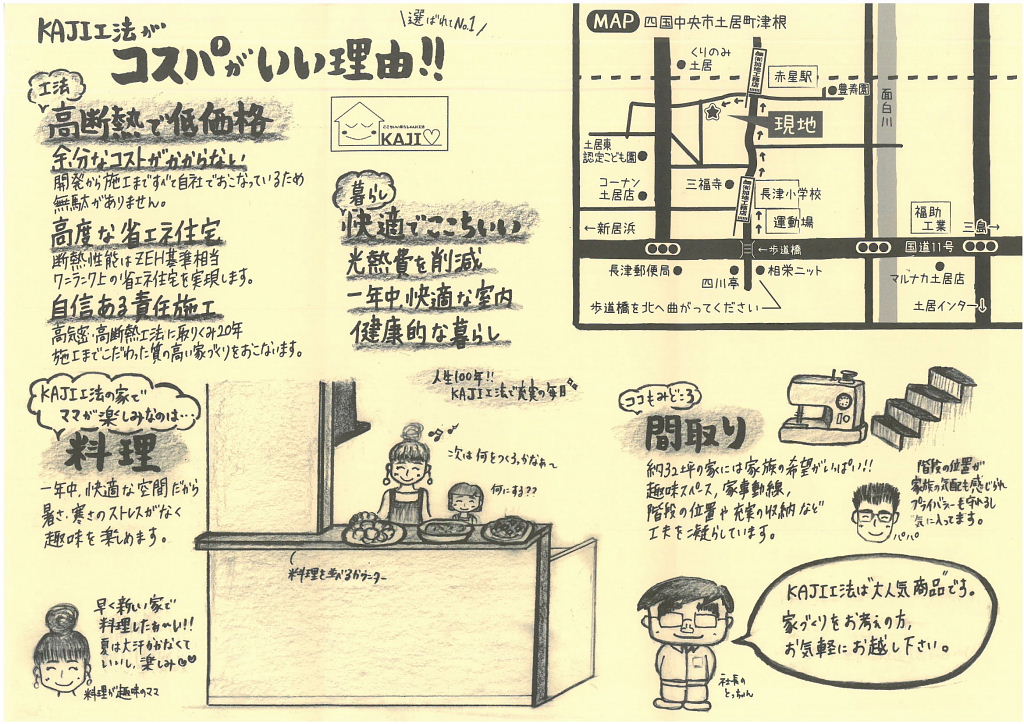 KAJI工法が
コスパがいい理由!!
選ばれてNo.1
工法
高断熱で低価格
余分なコストがかからない
開発から施工まですべて自社でおこなっているため
無駄がありません。
高度な省エネ住宅
断熱性能はZEH基準相当
ワンランク上の省エネ住宅を実現します。
自信ある責任施工
高気密・高断熱工法に取りくみ20年
施工までこだわった質の高い家づくりをおこないます。
KAJI♡
暮らし
快適でここちいい
光熱費を削減
一年中、快適な室内
健康的な暮らし
MAP 四国中央市土居町津根
くりのみ
土居
赤星駅
豊寿園
面白川
現地
土居東
認定こども園
コーナン
土居店
三福寺
長津小学校
運動場
福助
工業
←新居浜
三島→
←歩道橋
国道11号
長津郵便局
四川亭
相栄ニット
マルナカ土居店
歩道橋を北へ曲がってください
土居インター↓
KAJI工法の家で
ママが楽しみなのは…
料理
一年中、快適な空間だから
暑さ・寒さのストレスがなく
趣味を楽しめます。
人生100年!!
KAJI工法で充実の毎日♫
次は何をつくろっかなぁ〜
何にする??
料理を並べるカウンター
早く新しい家で
料理したぁ〜い!!
夏は大汗かかなくて
いいし、楽しみ♥♥
料理が趣味のママ
ココもみどころ
間取り
約32坪の家には家族の希望がいっぱい!!
趣味スペース、家事動線、
階段の位置や充実の収納など
工夫を凝らしています。
階段の位置が
家族の気配も感じられ
プライバシーも守れるし
気に入ってます。
パパ
KAJI工法は"大人気商品"です。
家づくりをお考えの方、
お気軽にお越し下さい。
社長の
とっちゃん